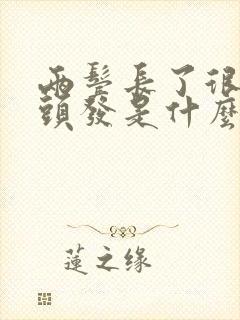 兩鬢長了很
頭發是什麼
蓮之缘